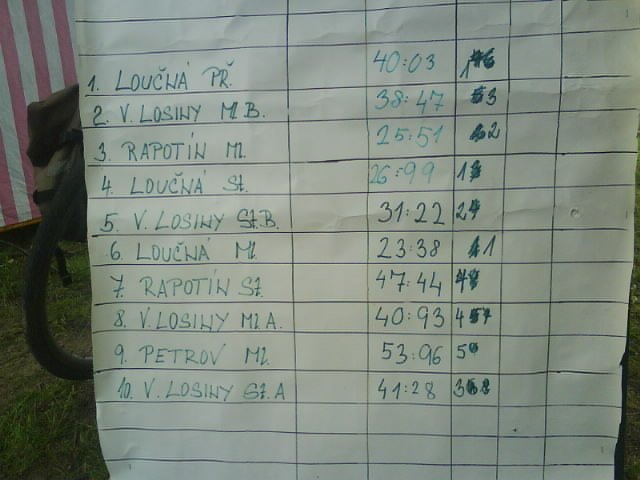 1. LOUČNÁ PŘ. 40:03 1
2. V. LOSINY Ml. B. 38:47 3
3. RAPOTÍN Ml. 25:51 2
4. LOUČNÁ St. 26:99 1
5. V. LOSINY St. B. 31:22 2
6. LOUČNÁ Ml. 23:38 1
7. RAPOTÍN St. 47:44 4
8. V. LOSINY Ml. A. 40:93 4
9. PETROV Ml. 53:96 5
10. V. LOSINY St. A 41:28 3